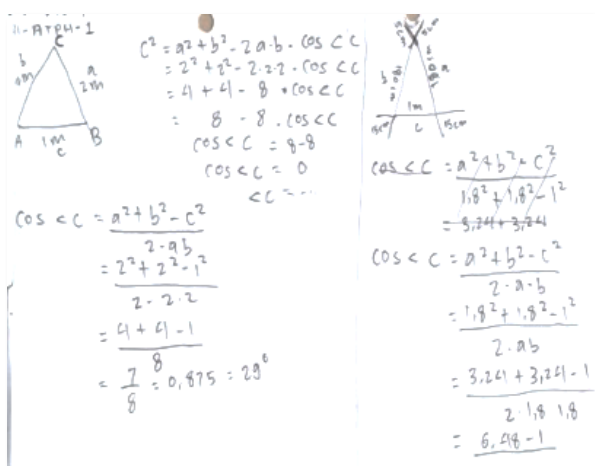 C
b
2m
a
2m
A
1m
B
c
c² = a² + b² - 2a.b. cos <c
= 2² + 2² - 2.2.2. cos <c
= 4 + 4 - 8 . cos <c
= 8 - 8 . cos <c
cos <c = 8-8
cos <c = 0
<c = ...
cos <c = a² + b² - c²
2.ab
= 2² + 2² - 1²
2.2.2
= 4 + 4 - 1
8
= 7 = 0,875 = 29°
8
b
a
1m
c
15cm
15cm
cos <c = a² + b² - c²
1,8² + 1,8² - 1²
= 3,24 + 3,24
cos <c = a² + b² - c²
2.a.b
= 1,8² + 1,8² - 1²
2.ab
= 3,24 + 3,24 - 1
2.1,8 1,8
= 6,48 - 1